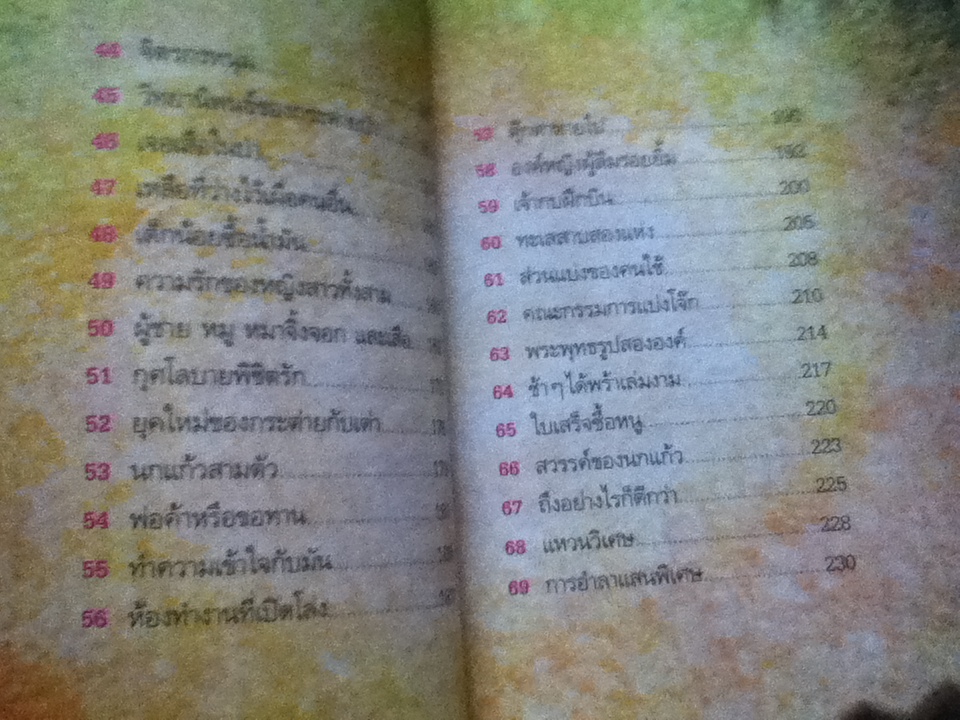 44
45 วิทยานิพนธ์ของกระต่าย
46 เจอเสือในป่า
47 เหลือที่ว่างไว้เผื่อคนอื่น
48 เด็กน้อยซื้อน้ำมัน
49 ความรักของหญิงสาวทั้งสาม
50 ผู้ชาย หมู หมาจิ้งจอก และเสือ
51 กุศโลบายพิชิตรัก
52 ยุคใหม่ของกระต่ายกับเต่า
53 นกแก้วสามตัว
54 พ่อค้าหรือขอทาน
55 ทำความเข้าใจกับมัน
56 ห้องทำงานที่เปิดโล่ง
57
58 องค์หญิงผู้ลืมรอยยิ้ม 192
59 เจ้ากบฝึกบิน 200
60 ทะเลสาบสองแห่ง 205
61 ส่วนแบ่งของคนใช้ 208
62 คณะกรรมการแบ่งโจ๊ก 210
63 พระพุทธรูปสององค์ 214
64 ช้าๆ ได้พร้าเล่มงาม 217
65 ใบเสร็จซื้อหนู 220
66 สวรรค์ของนกแก้ว 223
67 ถึงอย่างไรก็ดีกว่า 225
68 แหวนวิเศษ 228
69 การอำลาแสนพิเศษ 230